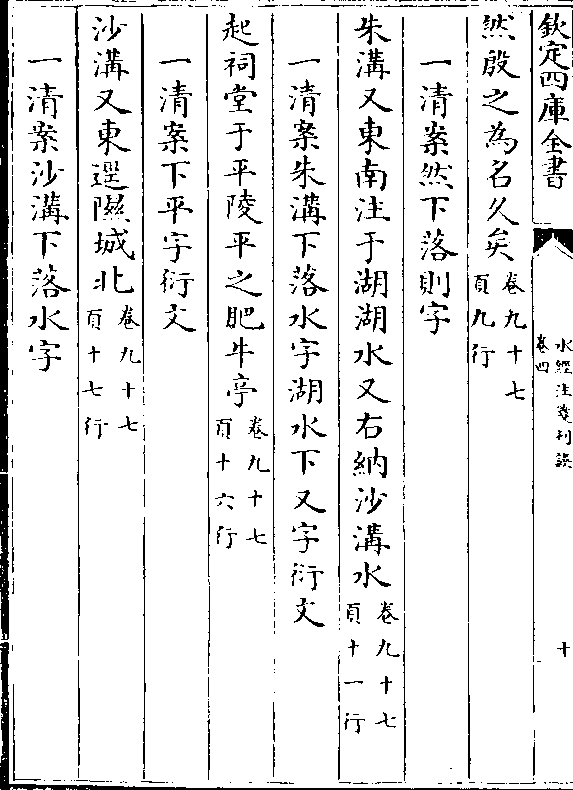 欽定四庫全書
水經注箋刊誤
卷四
十
然殷之為名久矣卷九十七
頁九行
一清案然下落則字
朱溝又東南注于湖湖水又右納沙溝水卷九十七
頁十一行
一清案朱溝下落水字湖水下又字衍文
起祠堂于平陵平之肥牛亭卷九十七
頁十六行
一清案下平字衍文
沙溝又東逕隰城北卷九十七
頁十七行
一清案沙溝下落水字